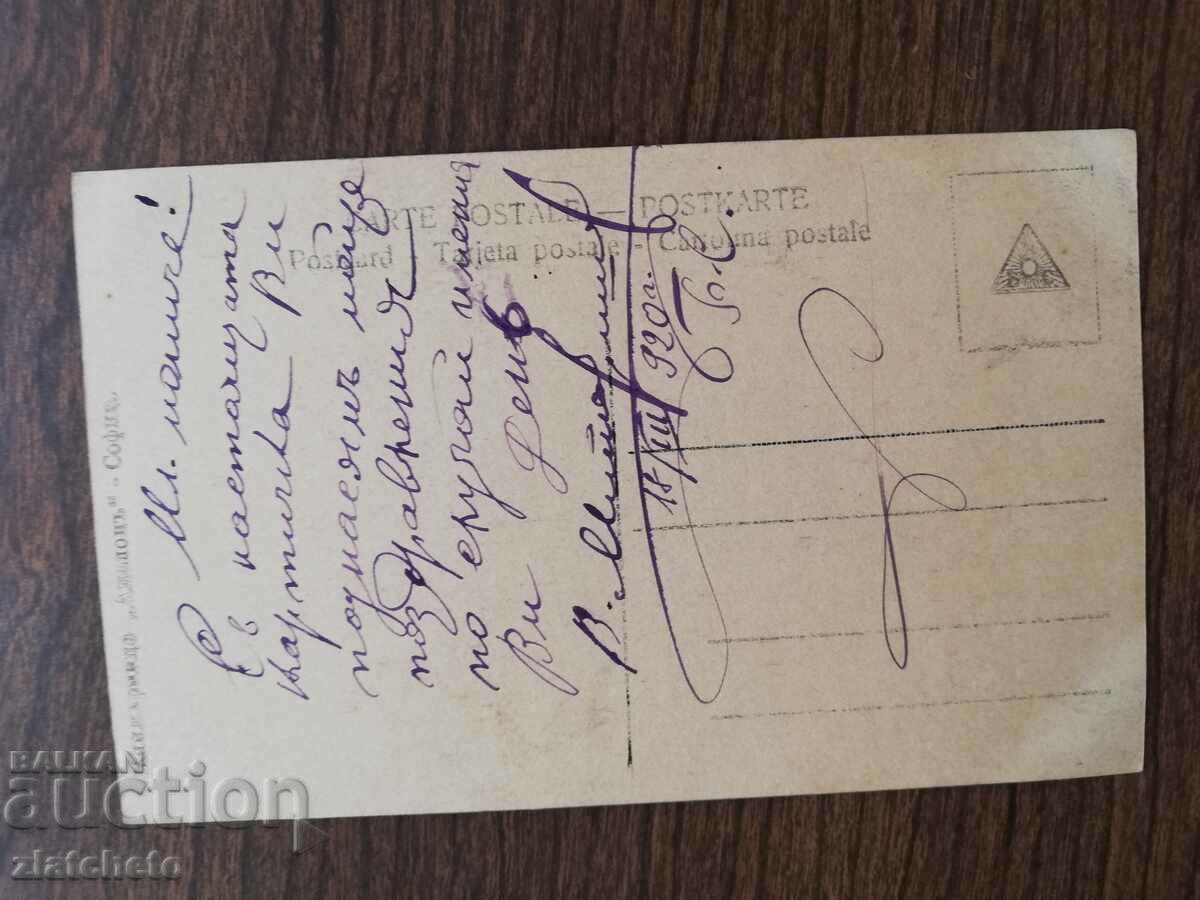 Мл. момиче!
С настоящата
картичка Ви
поднасямъ мойте
поздравления
по случай имения
Ви день
В.
18/III 920г.
CARTE POSTALE — POSTKARTE
Postcard Tarjeta postale - Cartolina postale
София
BALKAN
auction
zlatcheto